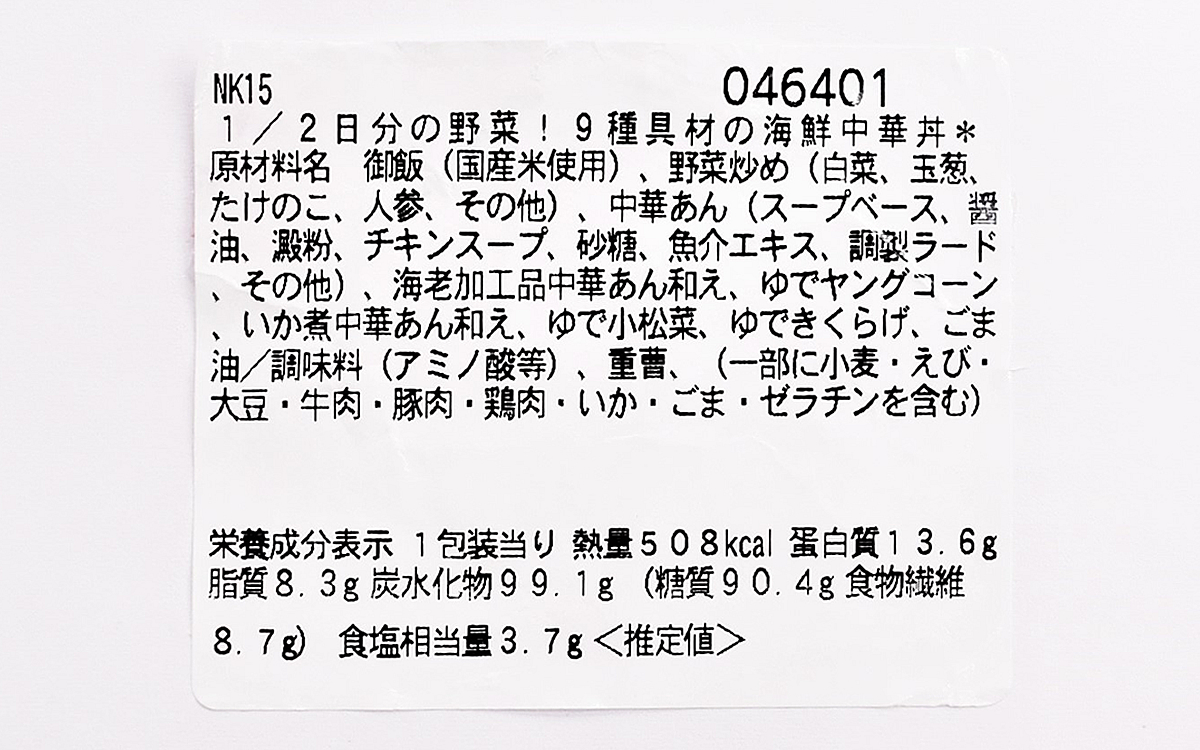 NK15 046401
1/2日分の野菜!9種具材の海鮮中華丼*
原材料名 御飯(国産米使用)、野菜炒め(白菜、玉葱、
たけのこ、人参、その他)、中華あん(スープベース、醤
油、澱粉、チキンスープ、砂糖、魚介エキス、調製ラード
、その他)、海老加工品中華あん和え、ゆでヤングコーン
、いか煮中華あん和え、ゆで小松菜、ゆできくらげ、ごま
油/調味料(アミノ酸等)、重曹、(一部に小麦・えび・
大豆・牛肉・豚肉・鶏肉・いか・ごま・ゼラチンを含む)
栄養成分表示 1包装当り 熱量508kcal 蛋白質13.6g
脂質8.3g 炭水化物99.1g (糖質90.4g 食物繊維
8.7g) 食塩相当量3.7g <推定値>